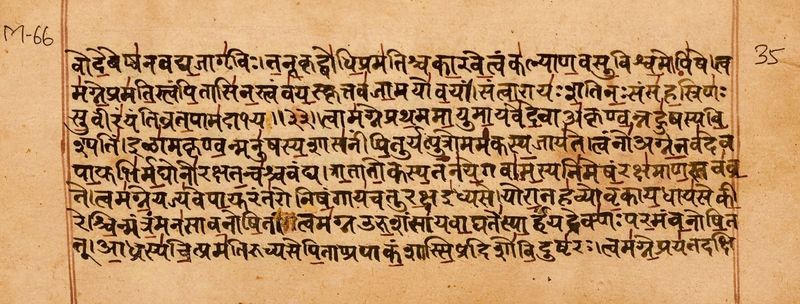 M-66
वोदेवेष्वनवद्यजागृविः। तनूकृद्बोधिप्रमतिश्चकारवेत्वंकल्याणवसुविश्वमोपिषे। त्व
मग्नेप्रमतिस्त्वंपितासिनस्त्वंवयस्कृत्तवजामयोवयं। संत्वारायःशतिनःसंसहस्रिणः
सुवीरंयंतिव्रतपामदाभ्य॥३३॥ त्वामग्नेप्रथममायुमायवेदेवाअकृण्वन्नहुषस्यवि
श्पतिं। इळामकृण्वन्मनुषस्यशासनींपितुर्यत्पुत्रोममकस्यजायते। त्वंनोअग्नेतवदेव
पायुभिर्मघोनोरक्षतन्वश्चवंद्य। त्रातातोकस्यतनयेगवामस्यनिमेषंरक्षमाणस्तवव्र
ते। त्वमग्नेयज्यवेपायुरंतरोनिषंगायचतुरक्षइध्यसे। योरातहव्योवृकायधायसेकी
रेश्चिन्मंत्रंमनसावनोषितं। त्वमग्नउरुशंसायवाघतेस्पार्हंयद्रेक्णःपरमंवनोषित
त्। आध्रस्यचित्प्रमतिरुच्यसेपिताप्रपाकंशास्सिप्रदिशोविदुष्टरः। त्वमग्नेप्रयतदक्षि
35